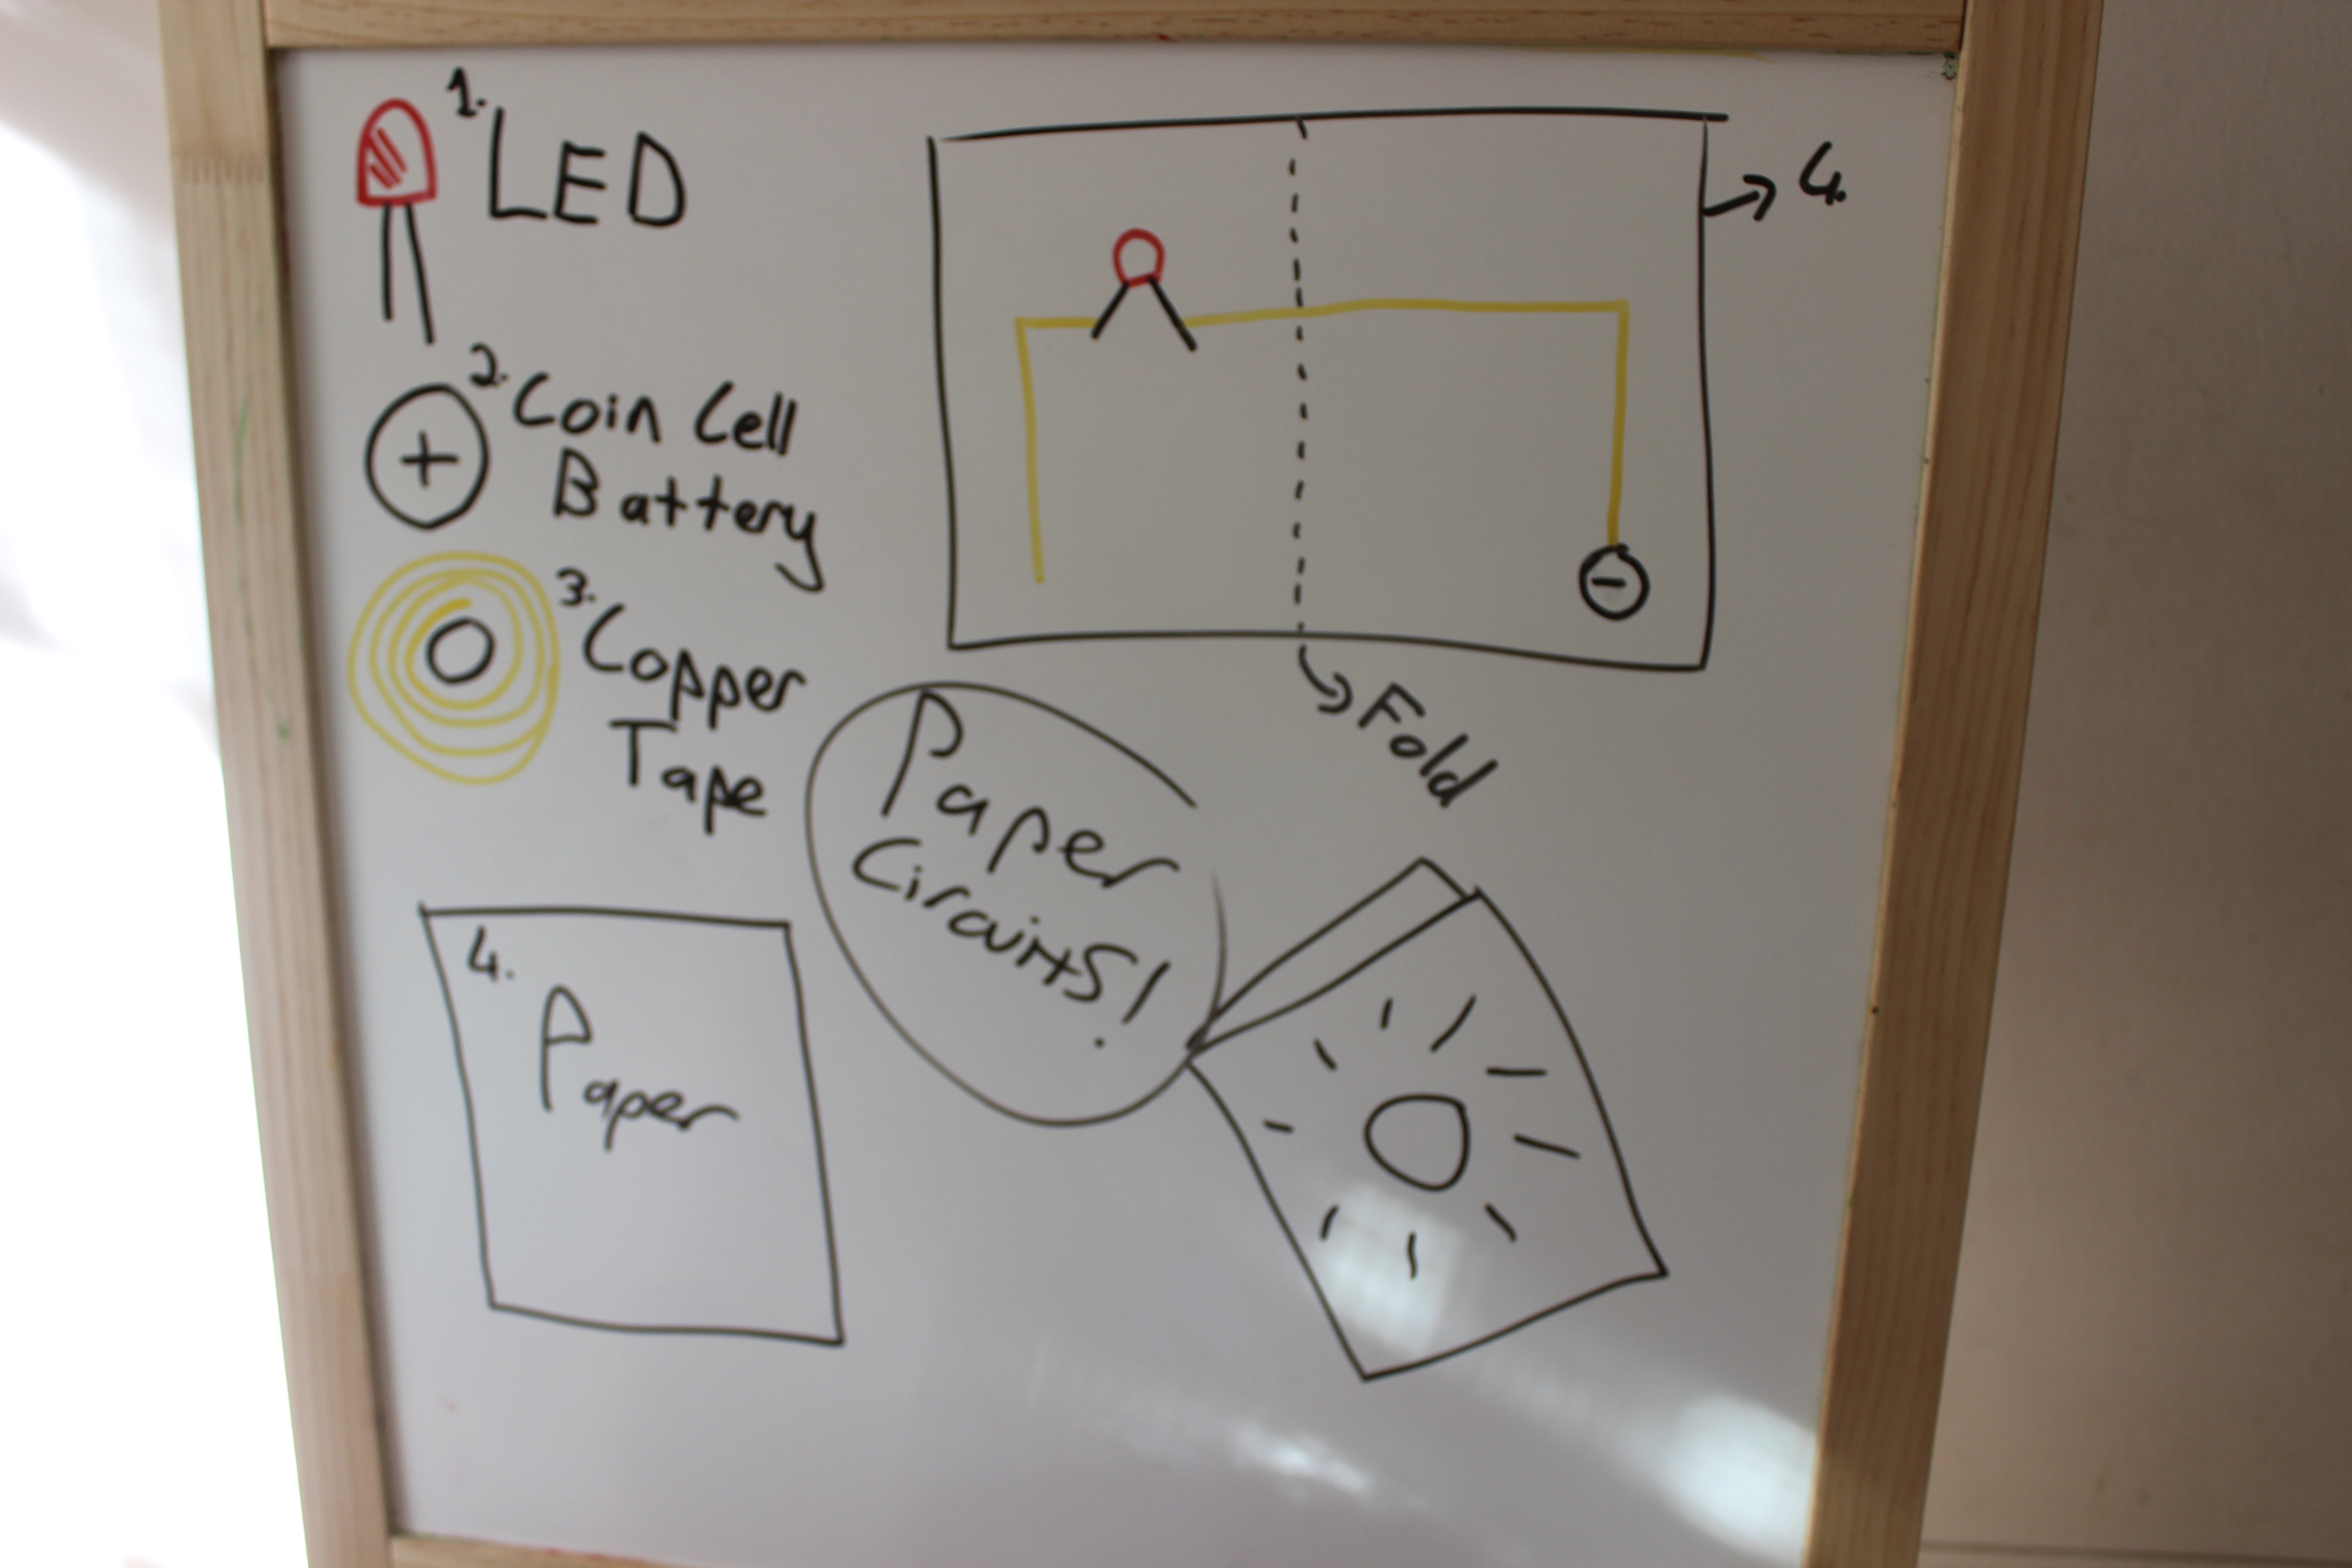 1. LED
2. Coin Cell
Battery
+
3. Copper
Tape
4.
Paper
→ 4.
-
→ Fold
Paper
Circuits!